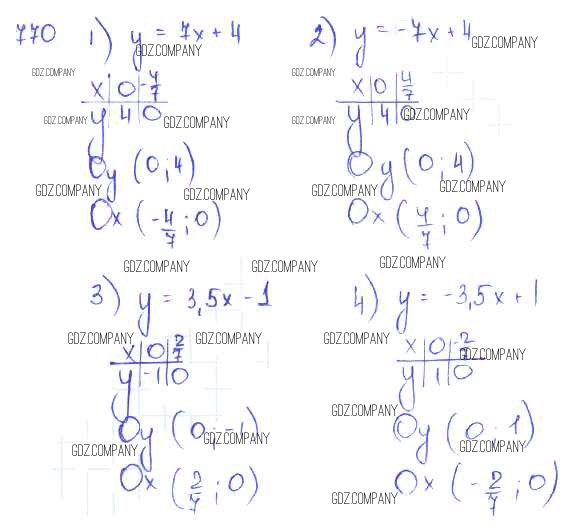 770 1) y = 7x + 4
GDZ.COMPANY
GDZ.COMPANY
x | 0 | -4/7
y | 4 | 0
GDZ.COMPANY
GDZ.COMPANY
Oy (0; 4)
GDZ.COMPANY
GDZ.COMPANY
Ox (-4/7; 0)
2) y = -7x + 4
GDZ.COMPANY
GDZ.COMPANY
x | 0 | 4/7
y | 4 | 0
GDZ.COMPANY
GDZ.COMPANY
Oy (0; 4)
GDZ.COMPANY
GDZ.COMPANY
Ox (4/7; 0)
GDZ.COMPANY
GDZ.COMPANY
GDZ.COMPANY
3) y = 3,5x - 1
GDZ.COMPANY
GDZ.COMPANY
x | 0 | 2/7
y | -1 | 0
Oy (0; -1)
GDZ.COMPANY
GDZ.COMPANY
Ox (2/7; 0)
4) y = -3,5x + 1
GDZ.COMPANY
GDZ.COMPANY
x | 0 | -2/7
y | 1 | 0
GDZ.COMPANY
Oy (0; 1)
GDZ.COMPANY
Ox (-2/7; 0)
GDZ.COMPANY